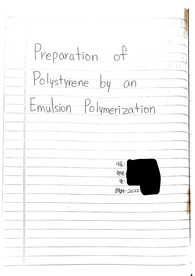 Preparation of
Polystyrene by an
Emulsion Polymerization
2022